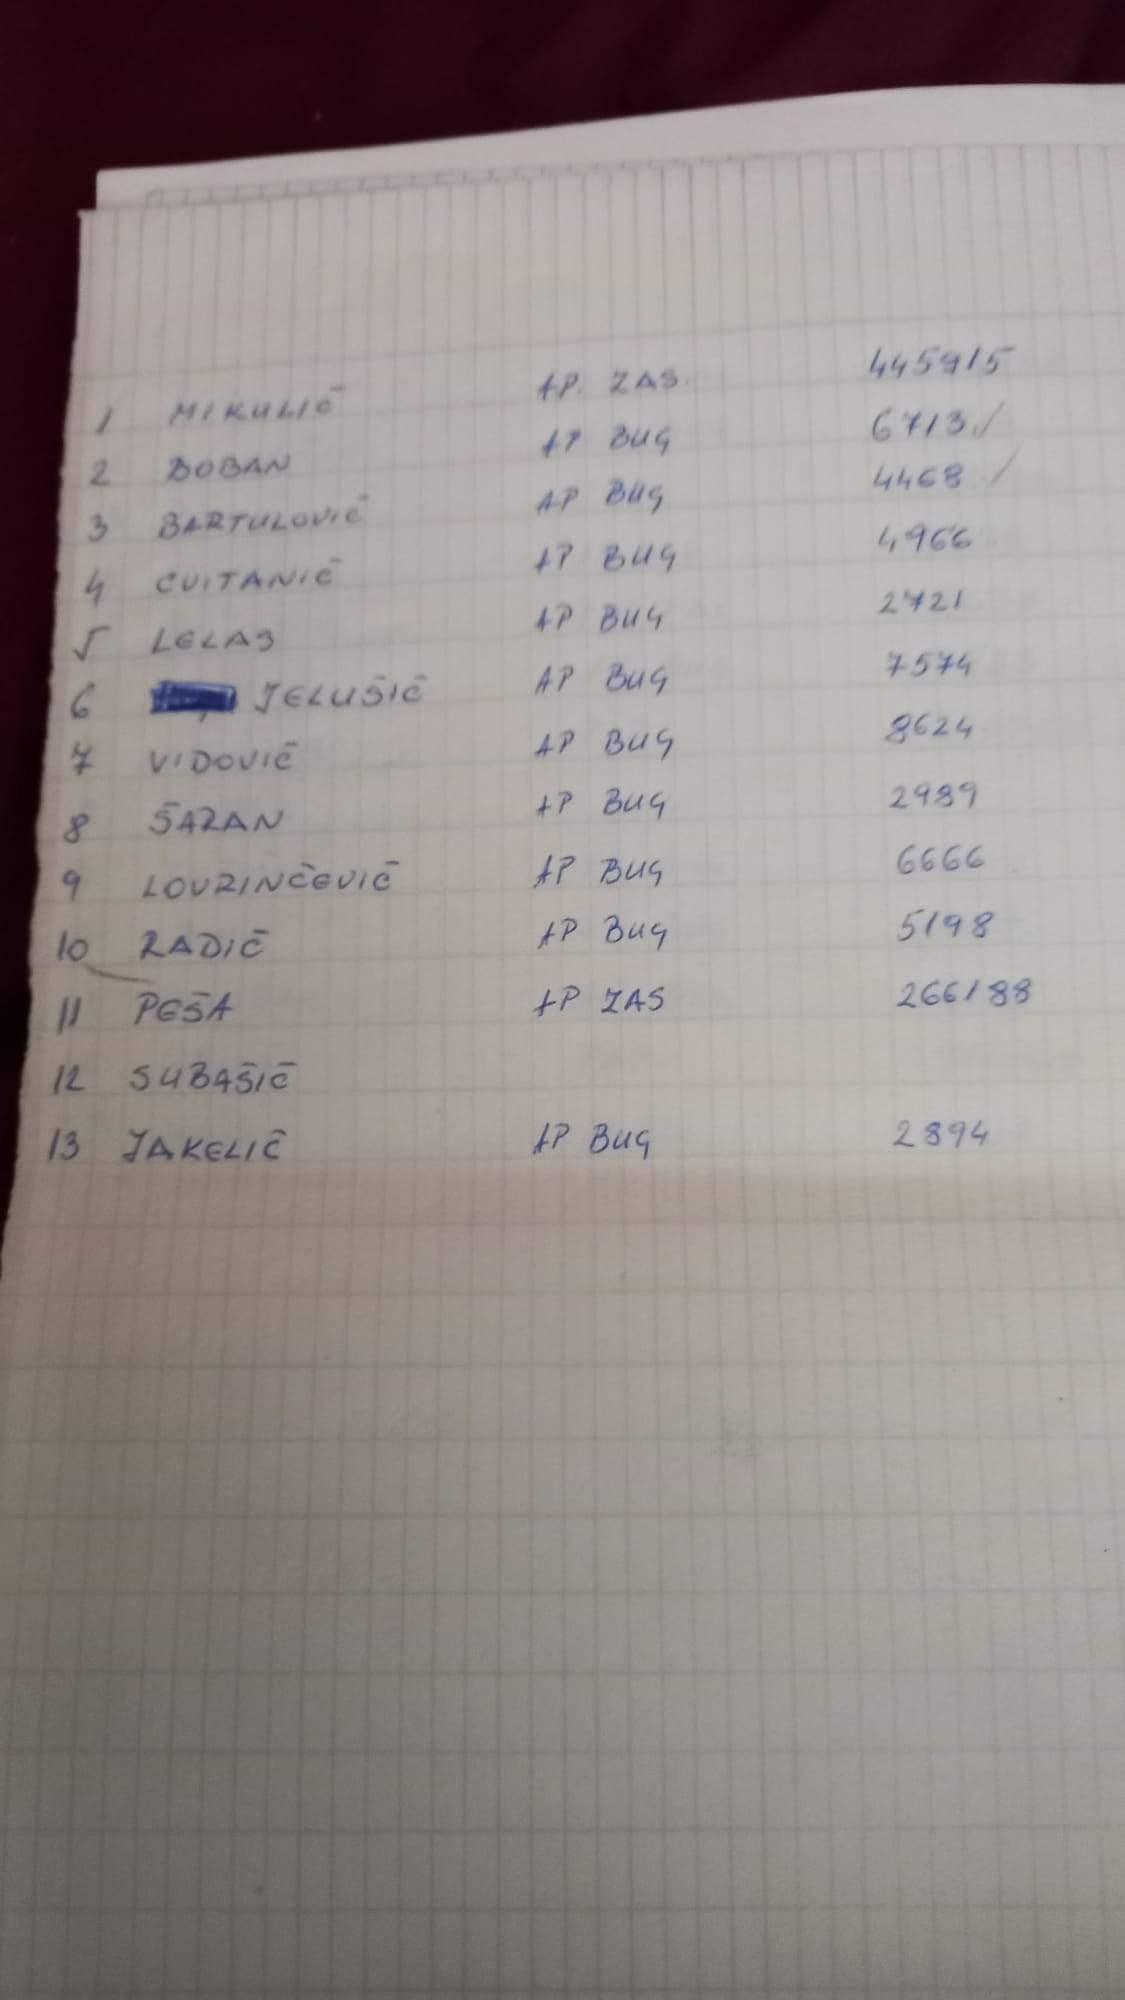 1 MIKULIĆ AP. ZAS. 445915
2 BOBAN AP BUG 6713 ✓
3 BARTULOVIĆ AP BUG 4468 /
4 CVITANIĆ AP BUG 4966
5 LELAS AP BUG 2721
6 JELUŠIĆ AP BUG 7574
7 VIDOVIĆ AP BUG 8624
8 ŠARAN AP BUG 2989
9 LOVRINČEVIĆ AP BUG 6666
10 RADIĆ AP BUG 5198
11 PEŠA AP ZAS 266188
12 SUBAŠIĆ
13 JAKELIĆ AP BUG 2894